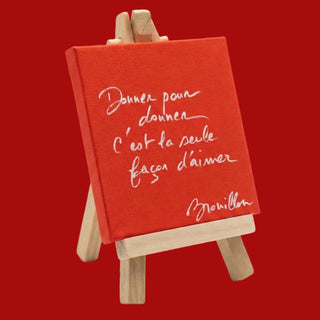 Donner pour
donner
C'est la seule
façon d'aimer
Brouillon